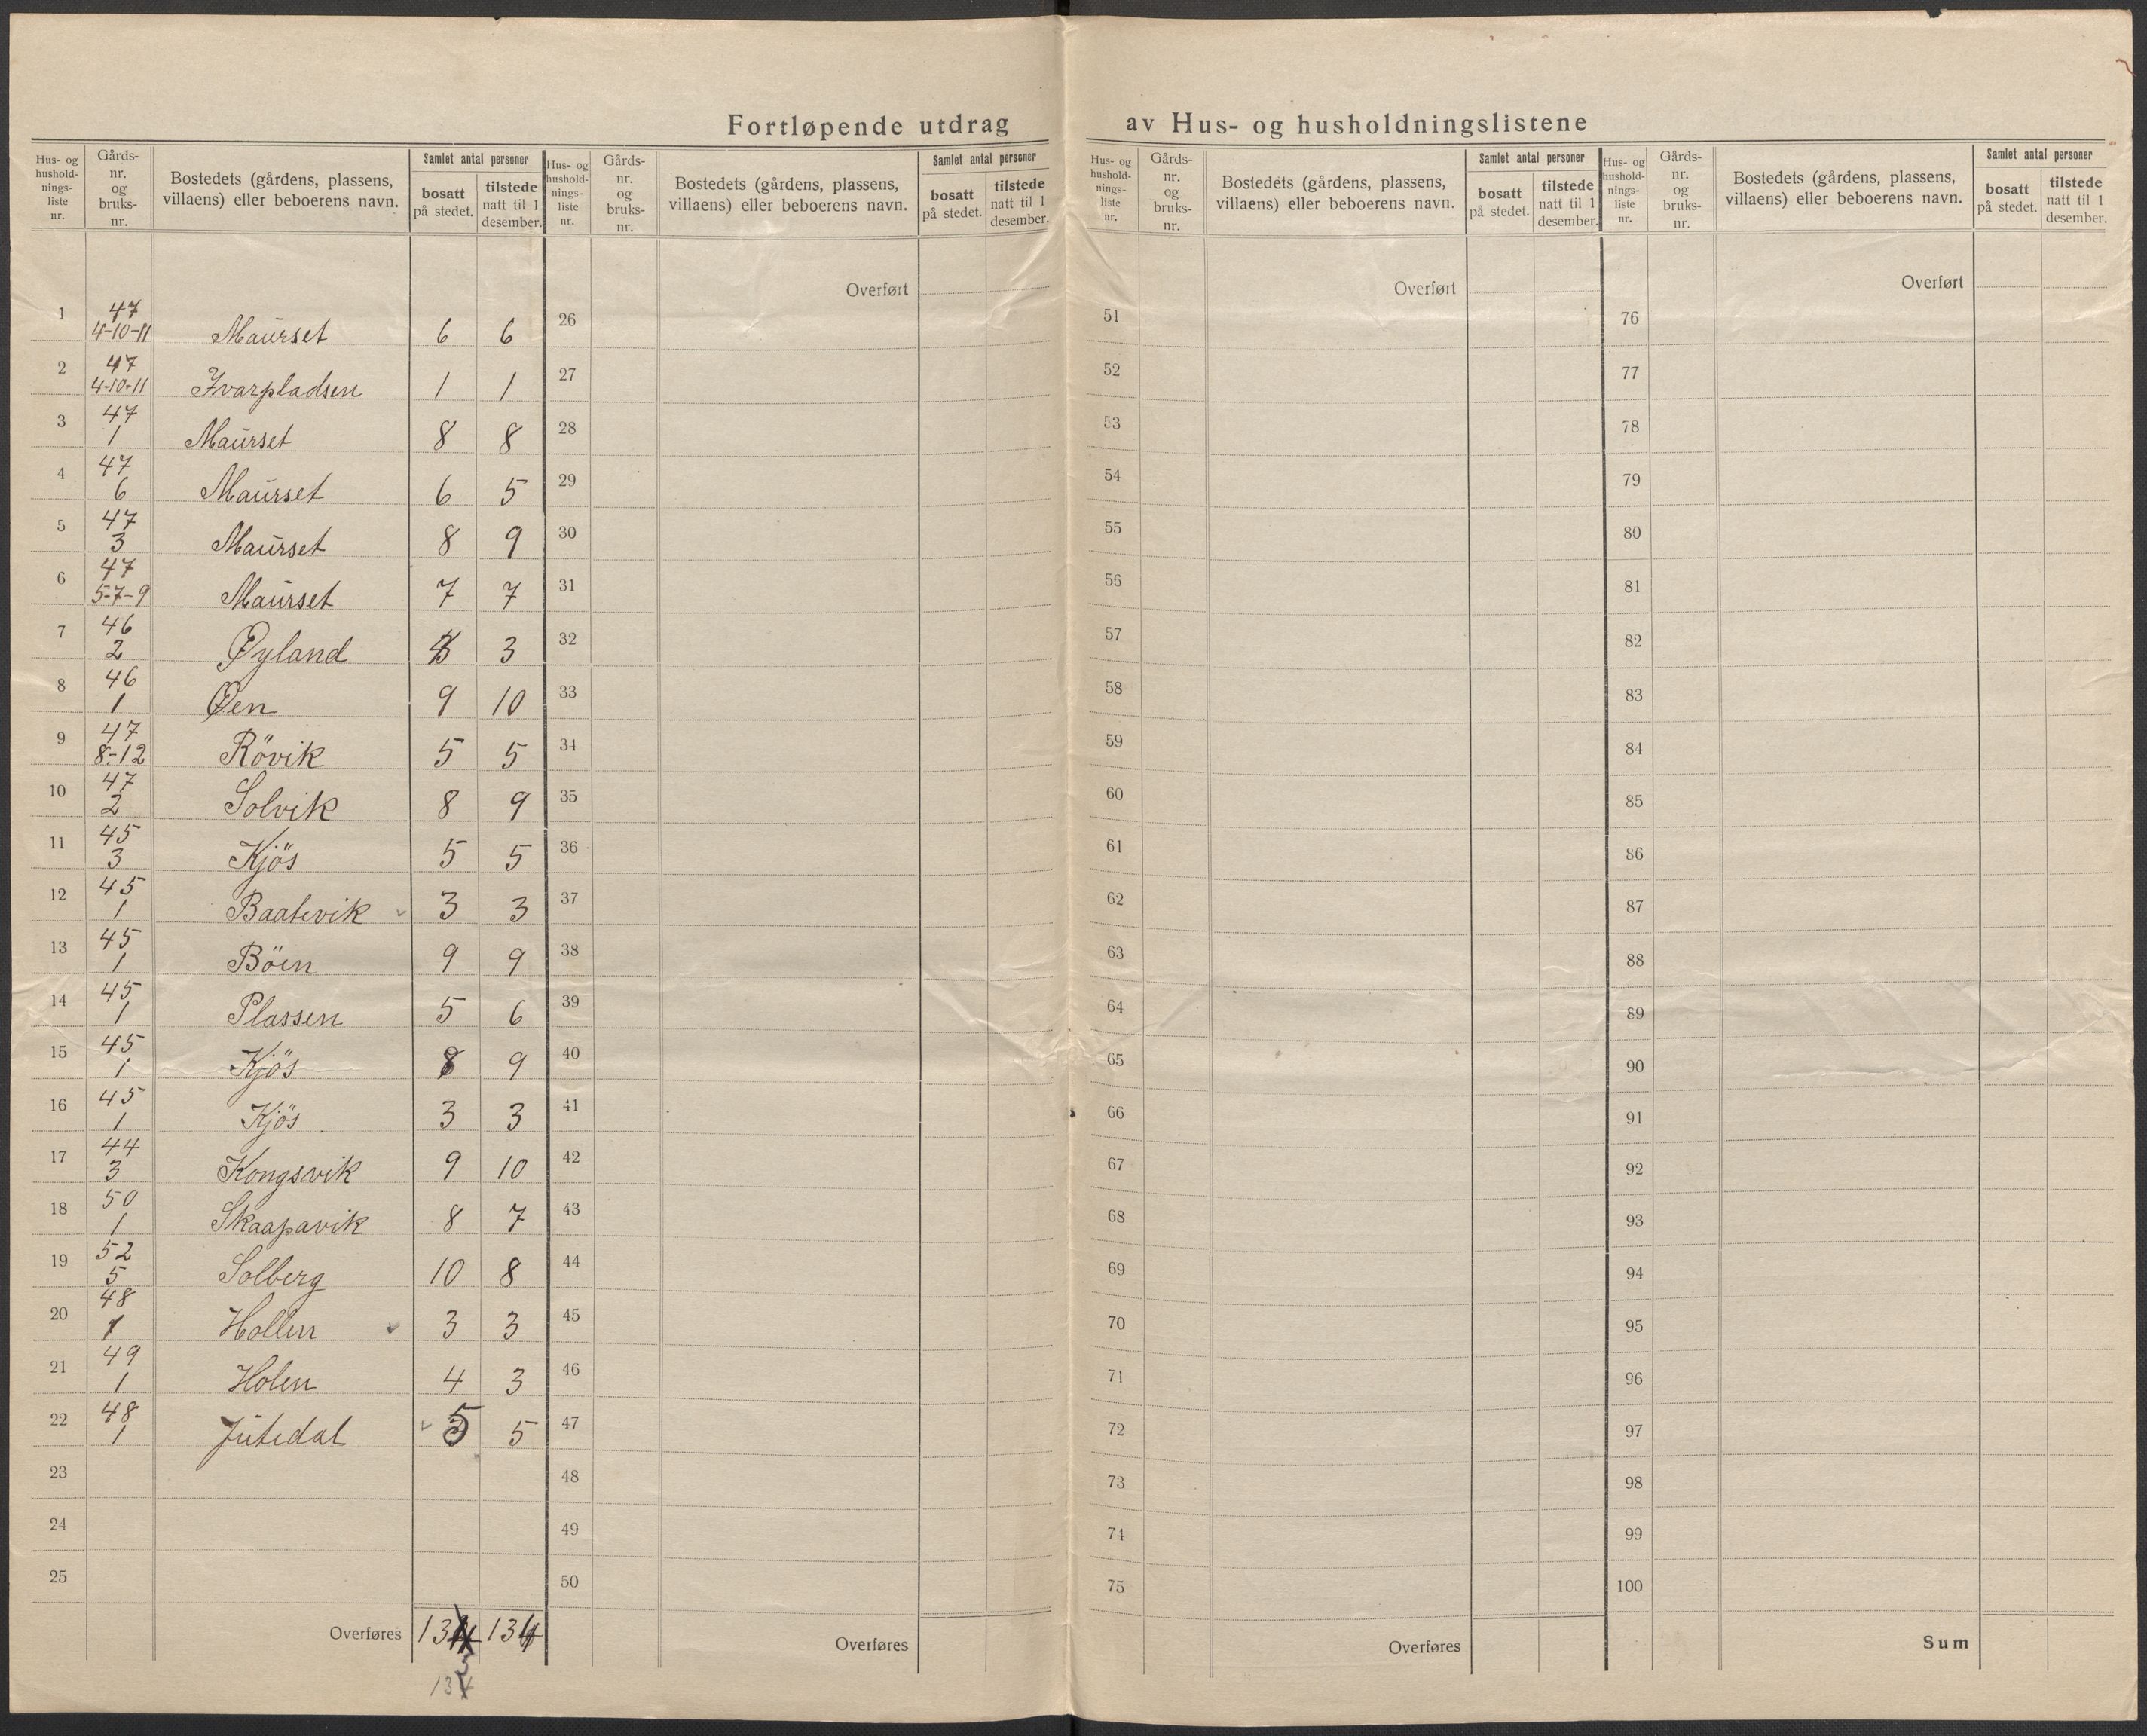 Fortløpende utdrag av Hus- og husholdningslistene
Hus- og hushold-nings-liste nr. Gårds-nr. og bruks-nr. Bostedets (gårdens, plassens, villaens) eller beboerens navn. Samlet antal personer bosatt på stedet. tilstede natt til 1 desember.
Hus- og hushold-nings-liste nr. Gårds-nr. og bruks-nr. Bostedets (gårdens, plassens, villaens) eller beboerens navn. Samlet antal personer bosatt på stedet. tilstede natt til 1 desember.
Hus- og hushold-nings-liste nr. Gårds-nr. og bruks-nr. Bostedets (gårdens, plassens, villaens) eller beboerens navn. Samlet antal personer bosatt på stedet. tilstede natt til 1 desember.
Hus- og hushold-nings-liste nr. Gårds-nr. og bruks-nr. Bostedets (gårdens, plassens, villaens) eller beboerens navn. Samlet antal personer bosatt på stedet. tilstede natt til 1 desember.
Overført Overført Overført
1 47 4-10-11 Maurset 6 6 26 51 76
2 47 4-10-11 Ivarpladsen 1 1 27 52 77
3 47 1 Maurset 8 8 28 53 78
4 47 6 Maurset 6 5 29 54 79
5 47 3 Maurset 8 9 30 55 80
6 47 5-7-9 Maurset 7 7 31 56 81
7 46 2 Øyland 3 32 57 82
8 46 1 Øen 9 10 33 58 83
9 47 8-12 Rövik 5 5 34 59 84
10 47 2 Solvik 8 9 35 60 85
11 45 3 Kjös 5 5 36 61 86
12 45 1 Baatevik 3 3 37 62 87
13 45 1 Böen 9 9 38 63 88
14 45 1 Plassen 5 6 39 64 89
15 45 1 Kjös 8 9 40 65 90
16 45 1 Kjös 3 3 41 66 91
17 44 3 Kongsvik 9 10 42 67 92
18 50 1 Skaapavik 8 7 43 68 93
19 52 5 Solberg 10 8 44 69 94
20 48 1 Hollen 3 3 45 70 95
21 49 1 Holen 4 3 46 71 96
22 48 1 Jutedal 5 5 47 72 97
23 48 73 98
24 49 74 99
25 50 75 100
Overføres 134 Overføres Overføres Sum